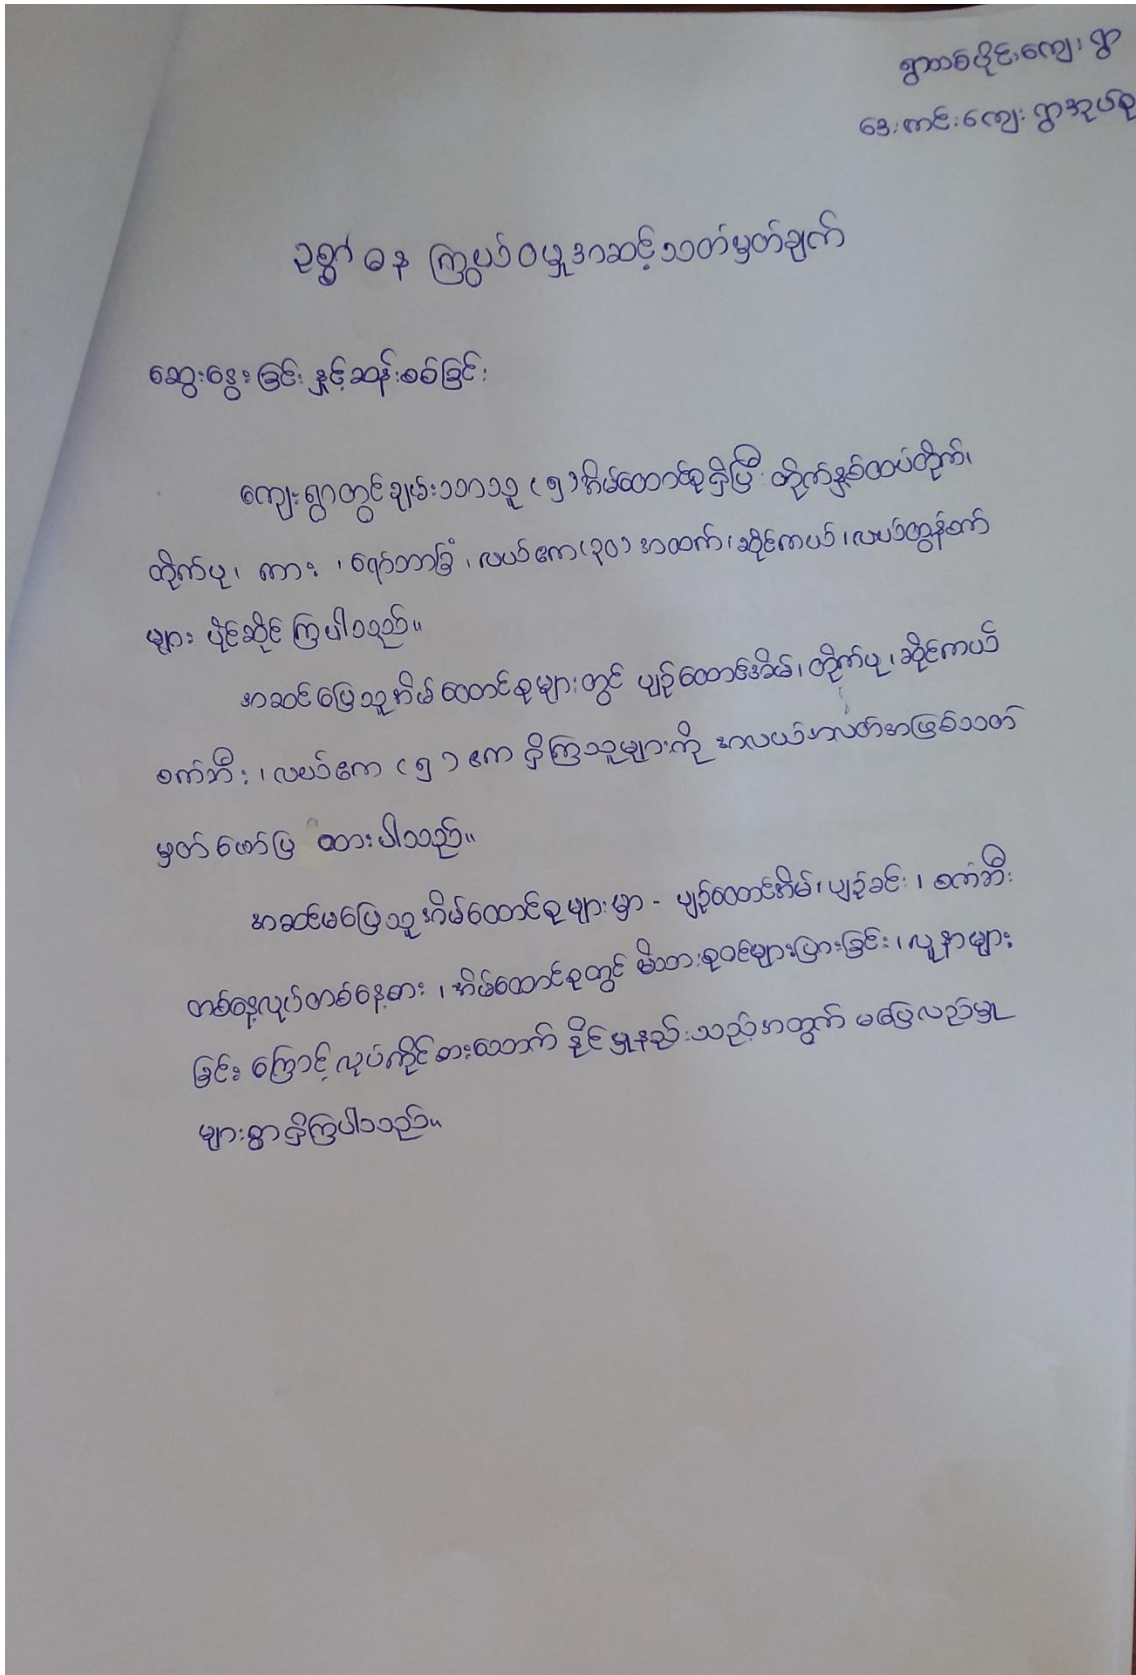 ရွာတစ်ပိုင်းကျေးရွာ
ဒေးကင်းကျေးရွာအုပ်စု
ဥစ္စာ ဓန ကြွယ်ဝမှုအဆင့်သတ်မှတ်ချက်
ဆွေးနွေးခြင်း နှင့်ဆန်းစစ်ခြင်း
ကျေးရွာတွင်ချမ်းသာသူ (၅)အိမ်ထောင်စုရှိပြီး တိုက်နှစ်ထပ်တိုက်၊
တိုက်ပု၊ ကား ၊ ရော်ဘာခြံ ၊ လယ်ဧက(၃၀) အထက်၊ ဆိုင်ကယ် ၊ လယ်ထွန်စက်
များ ပိုင်ဆိုင် ကြပါသည်။
အဆင်ပြေသူအိမ်ထောင်စုများတွင် ပျဉ်ထောင်အိမ်၊ တိုက်ပု ၊ ဆိုင်ကယ်
စက်ဘီး ၊ လယ်ဧက (၅) ဧက ရှိကြသူများကို အလယ်အလတ်အဖြစ်သတ်
မှတ်ဖော်ပြ ထားပါသည်။
အဆင်မပြေသူ အိမ်ထောင်စုများမှာ - ပျဉ်ထောင်အိမ်၊ ပျဉ်ခင်း ၊ စက်ဘီး
တစ်နေ့လုပ်တစ်နေ့စား ၊ အိမ်ထောင်စုတွင် မိသားစုဝင်များပြားခြင်း ၊ လူနာများ
ခြင်း ကြောင့် လုပ်ကိုင်စားသောက် နိုင်မှုနည်းသည့်အတွက် မပြေလည်မှု
များစွာရှိကြပါသည်။